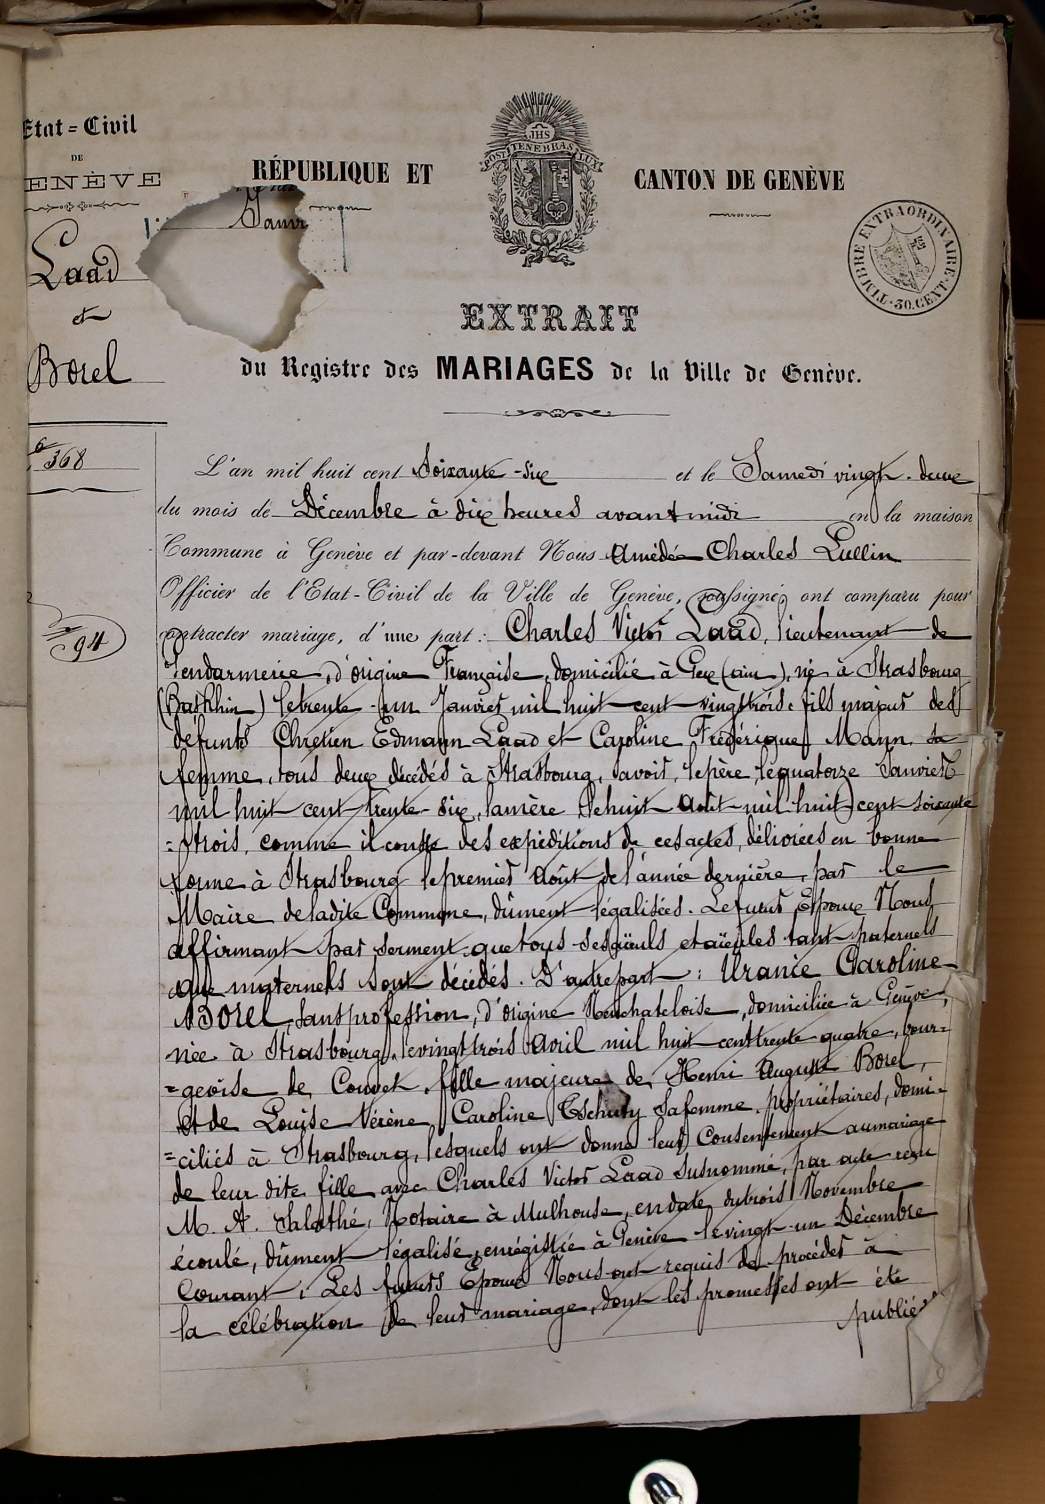 Etat=Civil
DE
ENÈVE
Laad
et
Borel
368
94
JHS
POST TENEBRAS LUX
RÉPUBLIQUE ET
CANTON DE GENÈVE
Janvr
TIMBRE EXTRAORDINAIRE
30. CENT.
EXTRAIT
du Registre des MARIAGES de la Ville de Genève.
L'an mil huit cent Soixante-six et le Samedi vingt-deux
du mois de Décembre à dix heures avant midi en la maison
Commune à Genève et par-devant Nous Amédée Charles Lullin
Officier de l'Etat-Civil de la Ville de Genève, soussigné, ont comparu pour
contracter mariage, d'une part: Charles Victor Laad, lieutenant de
Gendarmerie, d'origine Française, domicilié à Gex (ain), né à Strasbourg
(Bas Rhin) le trente-un Janvier mil huit cent vingt trois, fils majeur des
défunts Chretien Edmann Laad et Caroline Frédérique Mann sa
femme, tous deux décédés à Strasbourg, savoir, le père, le quatorze Janvier
mil huit cent trente-six, la mère le huit Août mil huit cent soixante
=trois, comme il conste des expéditions de ces actes, délivrées en bonne
forme à Strasbourg le premier Août de l'année dernière, par le
Maire de la dite Commune, dûment légalisées. Le futur Epoux Nous
affirmant par serment que tous ses aïeuls et aïeules tant paternels
que maternels sont décédés. D'autre part: Uranie Caroline
BOREL, sans profession, d'origine Neuchateloise, domiciliée à Genève,
née à Strasbourg, le vingt trois Avril mil huit cent trente quatre, bour=
=geoise de Couvet, fille majeure de Henri Auguste Borel,
et de Louise Vérène Caroline Tschudy sa femme, propriétaires, domi=
=ciliés à Strasbourg, lesquels ont donné leur consentement au mariage
de leur dite fille avec Charles Victor Laad susnommé, par acte reçu
M. A. Salathé, Notaire à Mulhouse, en date du trois Novembre
écoulé, dûment légalisé, enrégistré à Genève le vingt-un Décembre
courant. Les futurs Epoux Nous ont requis de procéder à
la célébration de leur mariage, dont les promesses ont été
publiées